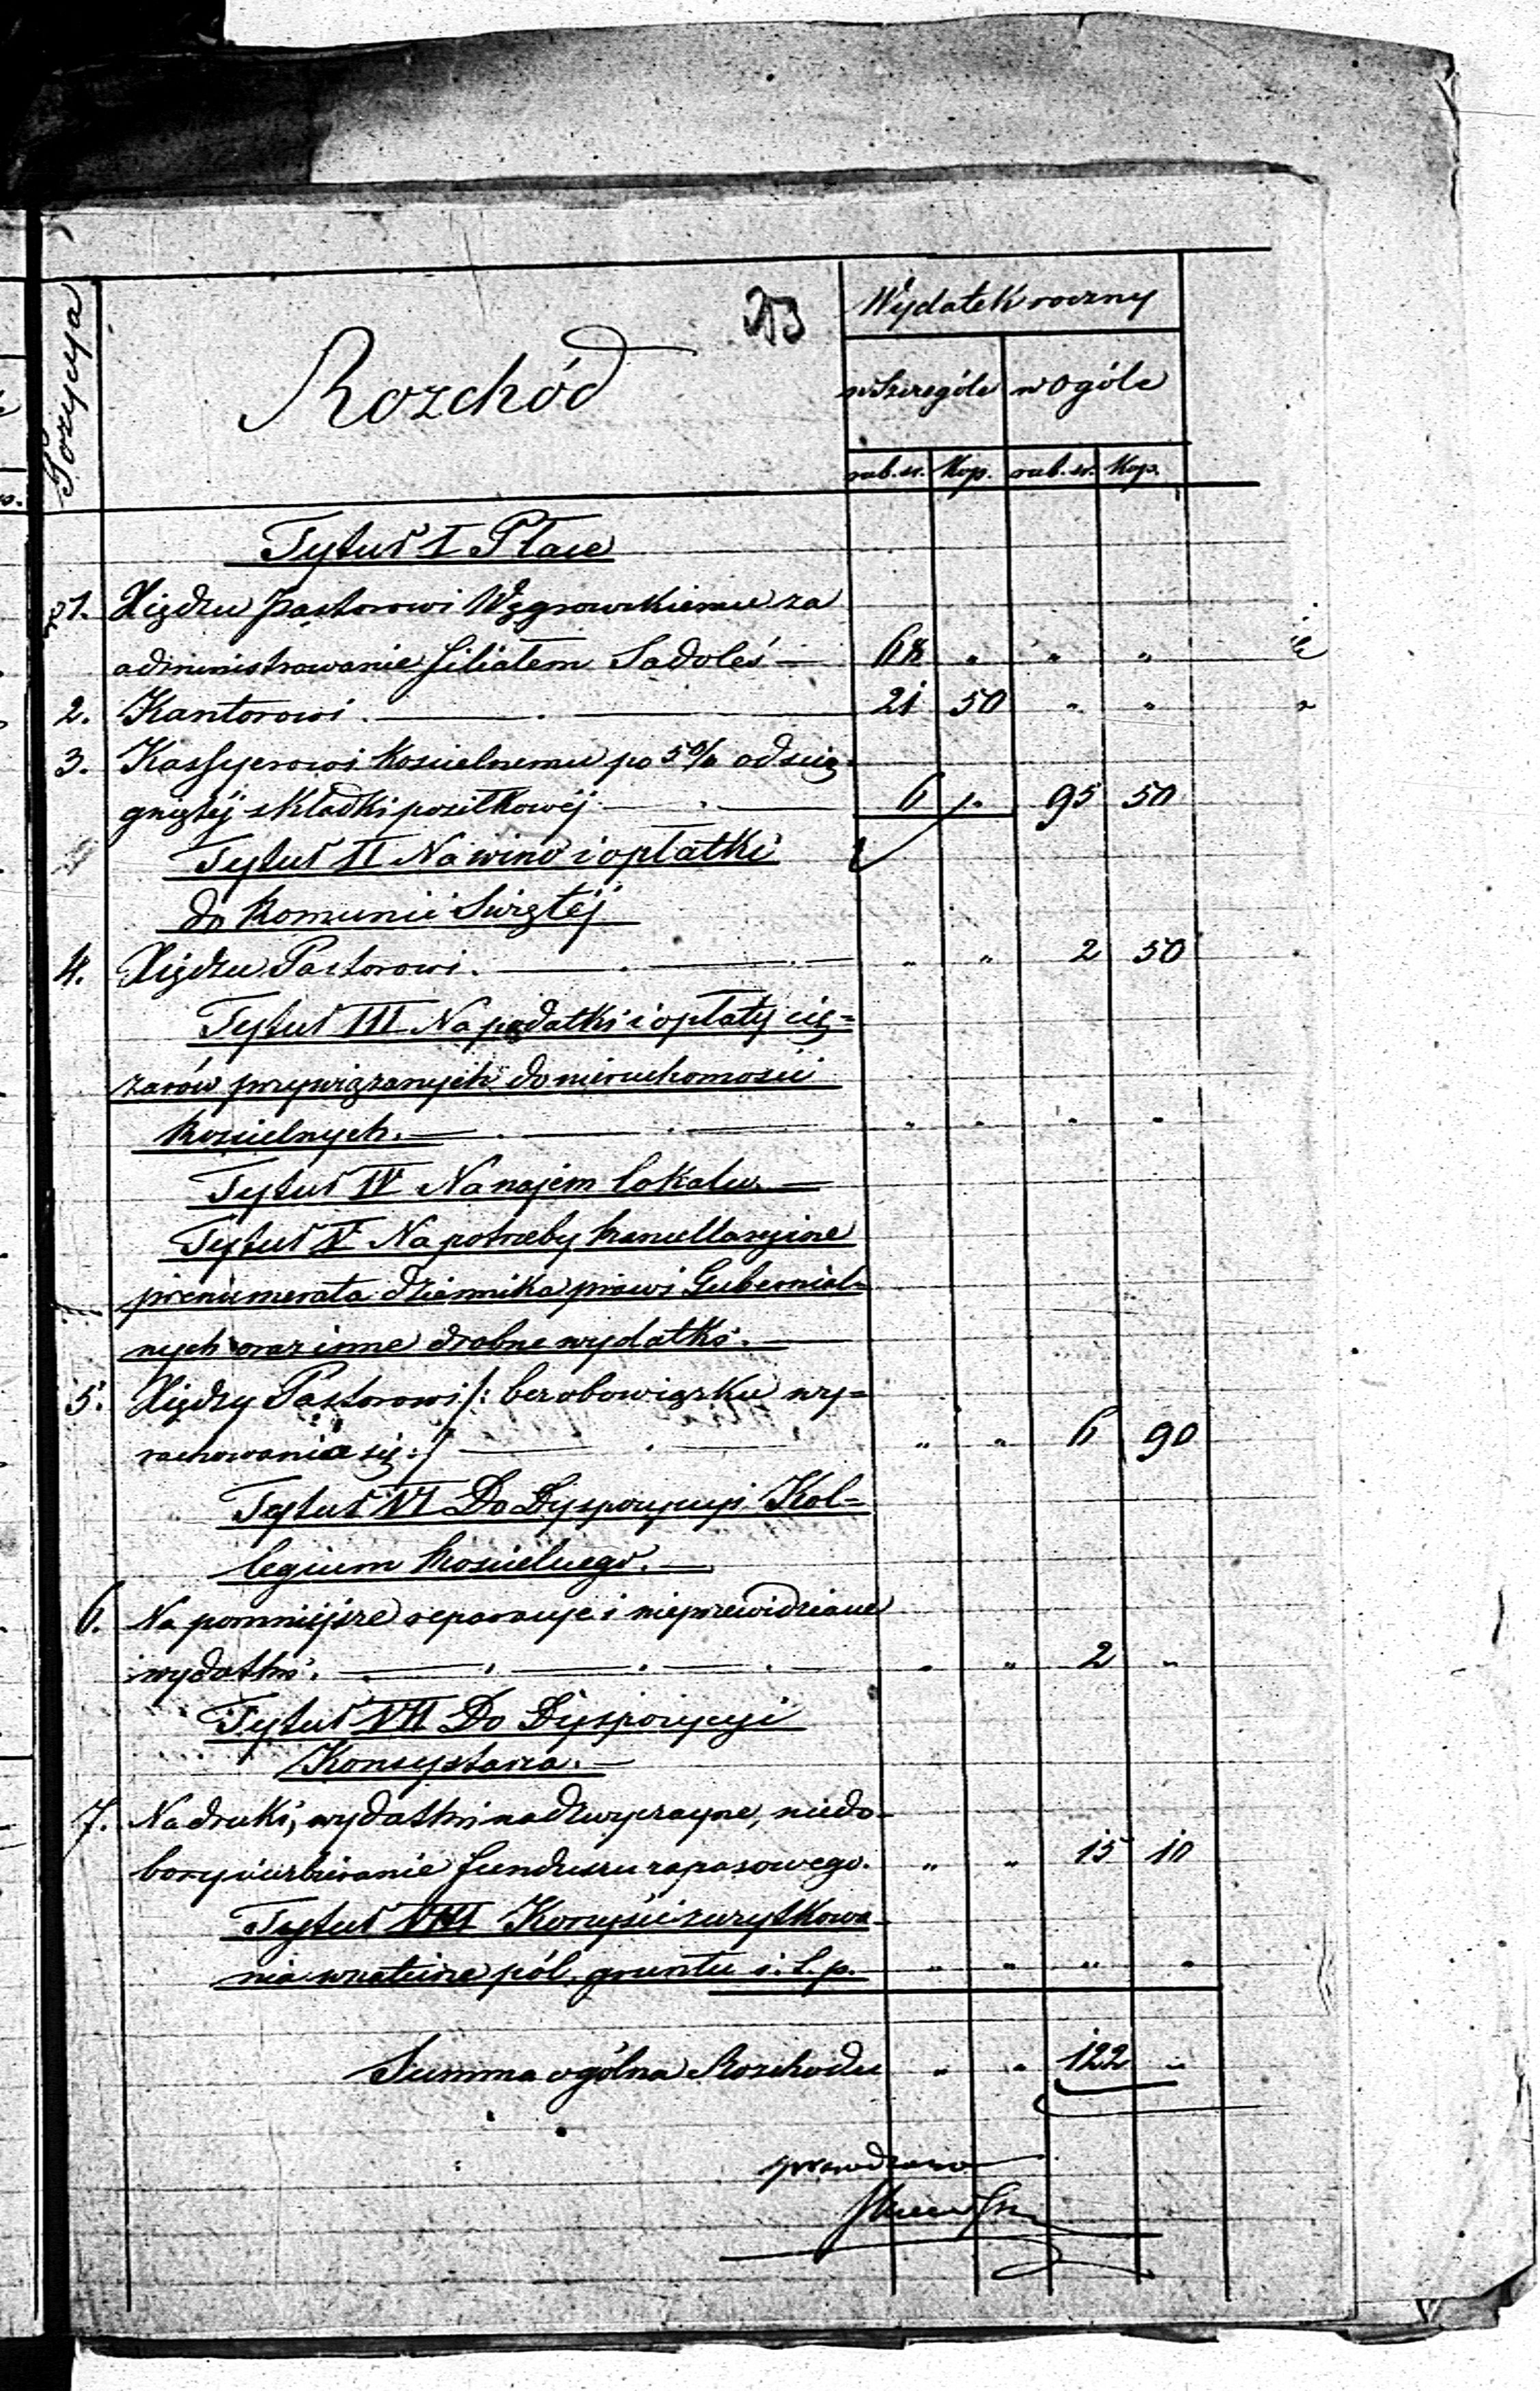 Pozycya
Rozchód
Wydatek roczny
w Szczególe w Ogóle
rub. sr. Kop. rub. sr. Kop.
Tytuł I Płace
1. Xiędzu Pastorowi Węgrowskiemu za
administrowanie filiałem Sadoleś — 68 " " "
2. Kantorowi. — 21 50 " "
3. Kassyerowi kościelnemu po 5% od ścią-
gniętéj składki posiłkowéj — 6 " 95 50
Tytuł II Na wino i opłatki
do Komunii Świętéj
4. Xiędzu Pastorowi. — " " 2 50
Tytuł III Na podatki i opłaty cię=
żarów przywiązanych do nieruchomości
Kościelnych. — " " " "
Tytuł IV Na najem lokalu. —
Tytuł V Na potrzeby kancellaryine
prenumerata dziennika praw i Gubernial=
nych oraz inne drobne wydatki. —
5. Xiędzy Pastorowi /: bez obowiązku wy=
rachowania się :/ — " " 6 90
Tytuł VI Do Dyspozycyi Kol=
legium Kościelnego. —
6. Na pomniejsze reparacye i nieprzewidziane
wydatki. — " " 2 "
Tytuł VII Do Dyspozycyi
Konsystorza. —
7. Na druki, wydatki nadzwyczayne, niedo-
bory i uzbieranie funduszu zapasowego. " " 15 10
Tytuł VIII Korzyści z użytkowa-
nia w naturze pól, gruntu i. t. p. " " " "
Summa ogólna Rozchodu " " 122 "
sprawdzono